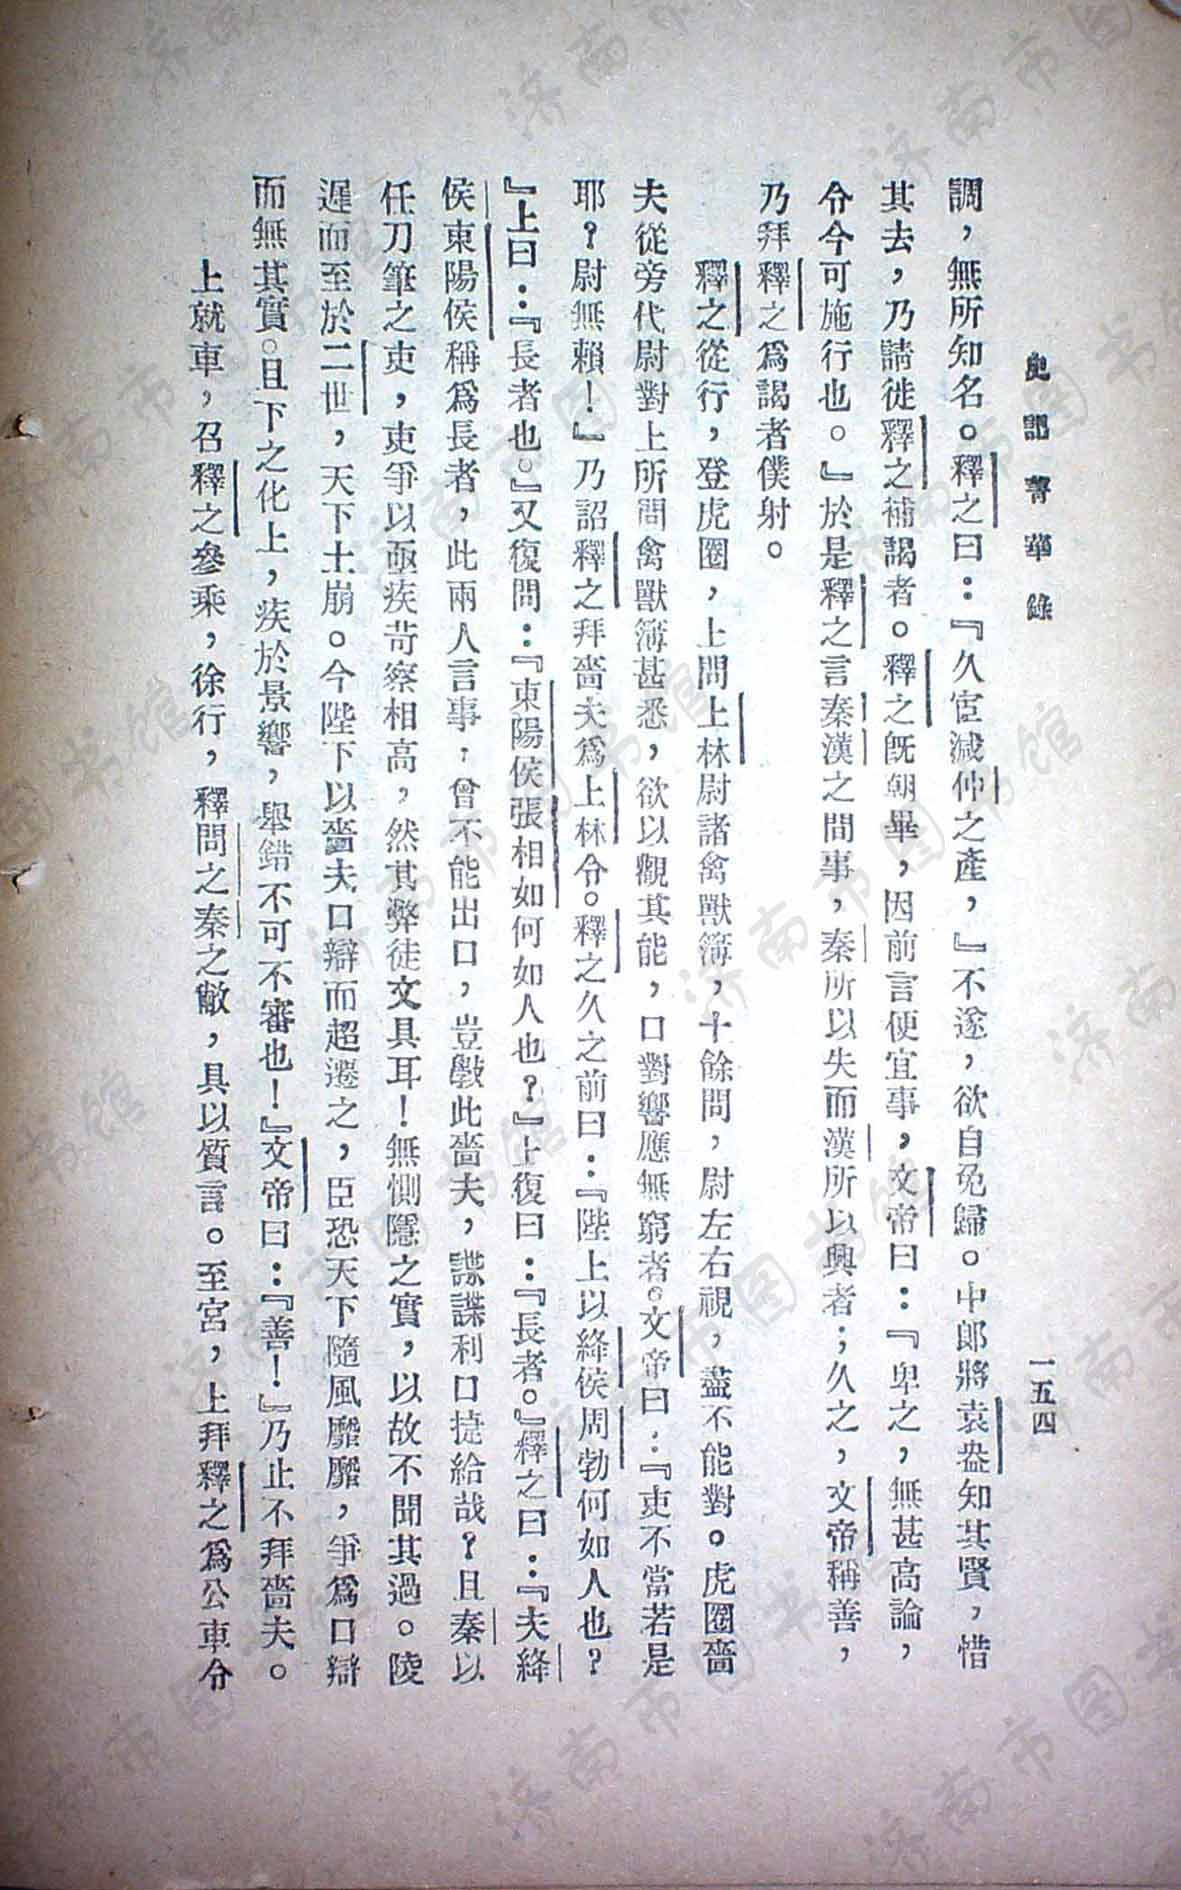 史記菁華錄
一五四
調，無所知名。釋之曰：『久宦減仲之產，』不遂，欲自免歸。中郎將袁盎知其賢，惜
其去，乃請徙釋之補謁者。釋之旣朝畢，因前言便宜事，文帝曰：『卑之，無甚高論，
令今可施行也。』於是釋之言秦漢之間事，秦所以失而漢所以興者；久之，文帝稱善，
乃拜釋之爲謁者僕射。
釋之從行，登虎圈，上問上林尉諸禽獸簿，十餘問，尉左右視，盡不能對。虎圈嗇
夫從旁代尉對上所問禽獸簿甚悉，欲以觀其能，口對響應無窮者。文帝曰：『吏不當若是
耶？尉無賴！』乃詔釋之拜嗇夫爲上林令。釋之久之前曰：『陛上以絳侯周勃何如人也？
』上曰：『長者也。』又復問：『東陽侯張相如何如人也？』上復曰：『長者。』釋之曰：『夫絳
侯東陽侯稱爲長者，此兩人言事，曾不能出口，豈斅此嗇夫，諜諜利口捷給哉？且秦以
任刀筆之吏，吏爭以亟疾苛察相高，然其弊徒文具耳！無惻隱之實，以故不聞其過。陵
遲而至於二世，天下土崩。今陛下以嗇夫口辯而超遷之，臣恐天下隨風靡靡，爭爲口辯
而無其實。且下之化上，疾於景響，舉錯不可不審也！』文帝曰：『善！』乃止不拜嗇夫。
上就車，召釋之參乘，徐行，釋問之秦之敝，具以質言。至宮，上拜釋之爲公車令
济南市图书馆